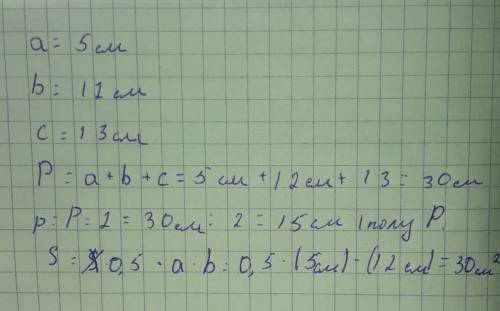 a = 5 см
b = 12 см
c = 13 см
P = a + b + c = 5 см + 12 см + 13 = 30 см
p = P = 2 = 30 см : 2 = 15 см | полу P.
S = 0,5 · a · b = 0,5 · (5 см) - (12 см) = 30 см²